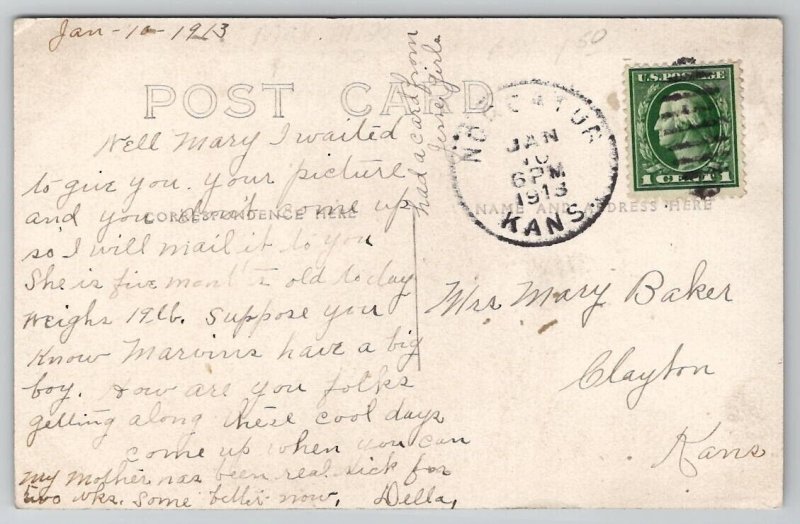 Jan-10-1913
POST CARD
Well Mary I waited
to give you your picture
and you don't come up
so I will mail it to you
She is five mont's old today
weighs 19lb. Suppose you
Know Marvins have a big
boy. How are you folks
getting along these cool days
come up when you can
My Mother has been real sick for
two wks. Some better now, Della,
had a card from
Jesse girls
CORRESPONDENCE HERE
NAME AND ADDRESS HERE
NORCATUR
JAN
10
6PM
1913
KANS.
U.S. POSTAGE
1 CENT 1
Mrs Mary Baker
Clayton
Kans
50